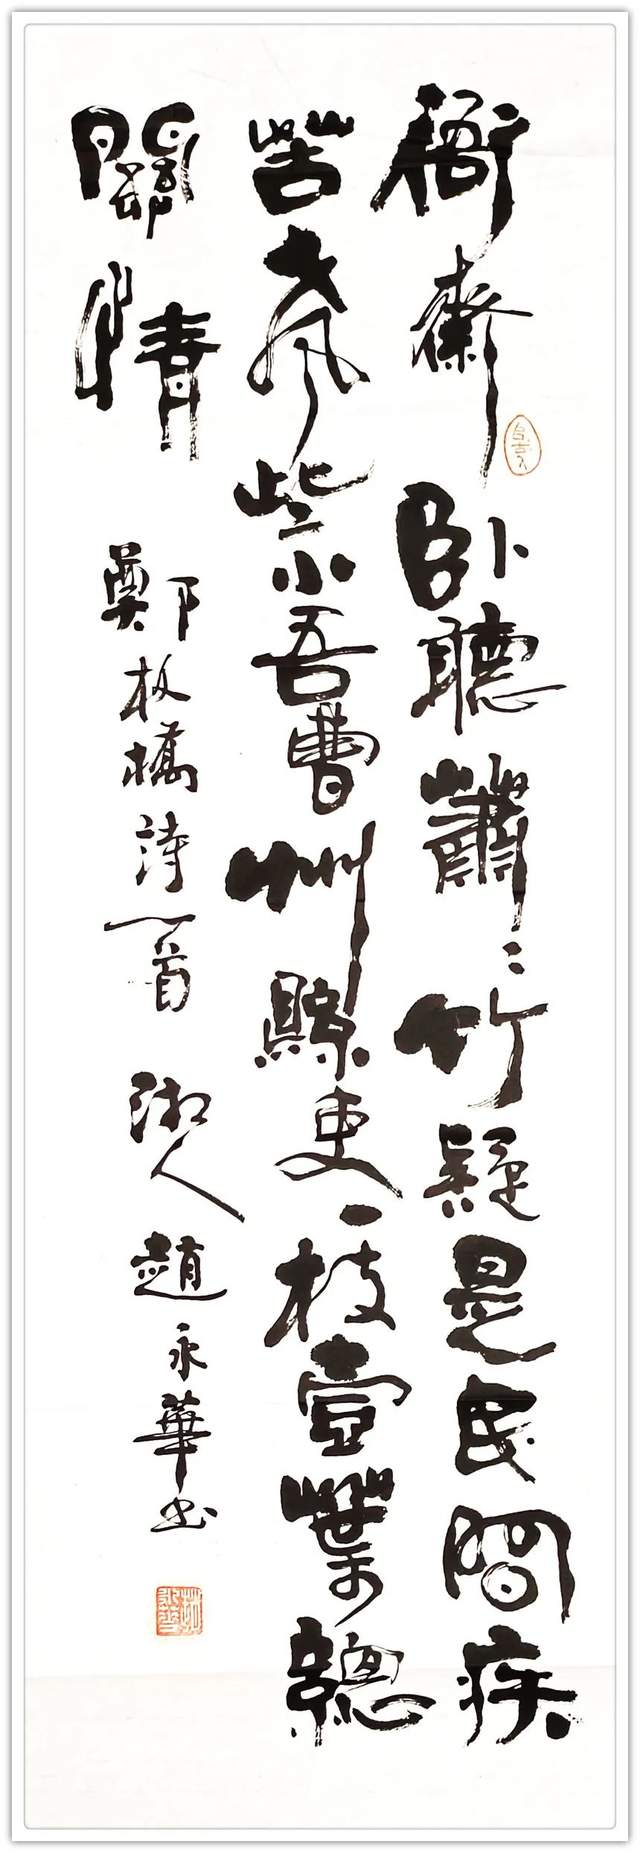 衙齋卧聽蕭〻竹疑是民間疾
苦聲些小吾曹州縣吏一枝壹葉總
關情
鄭板橋詩一首 湘人趙永華书